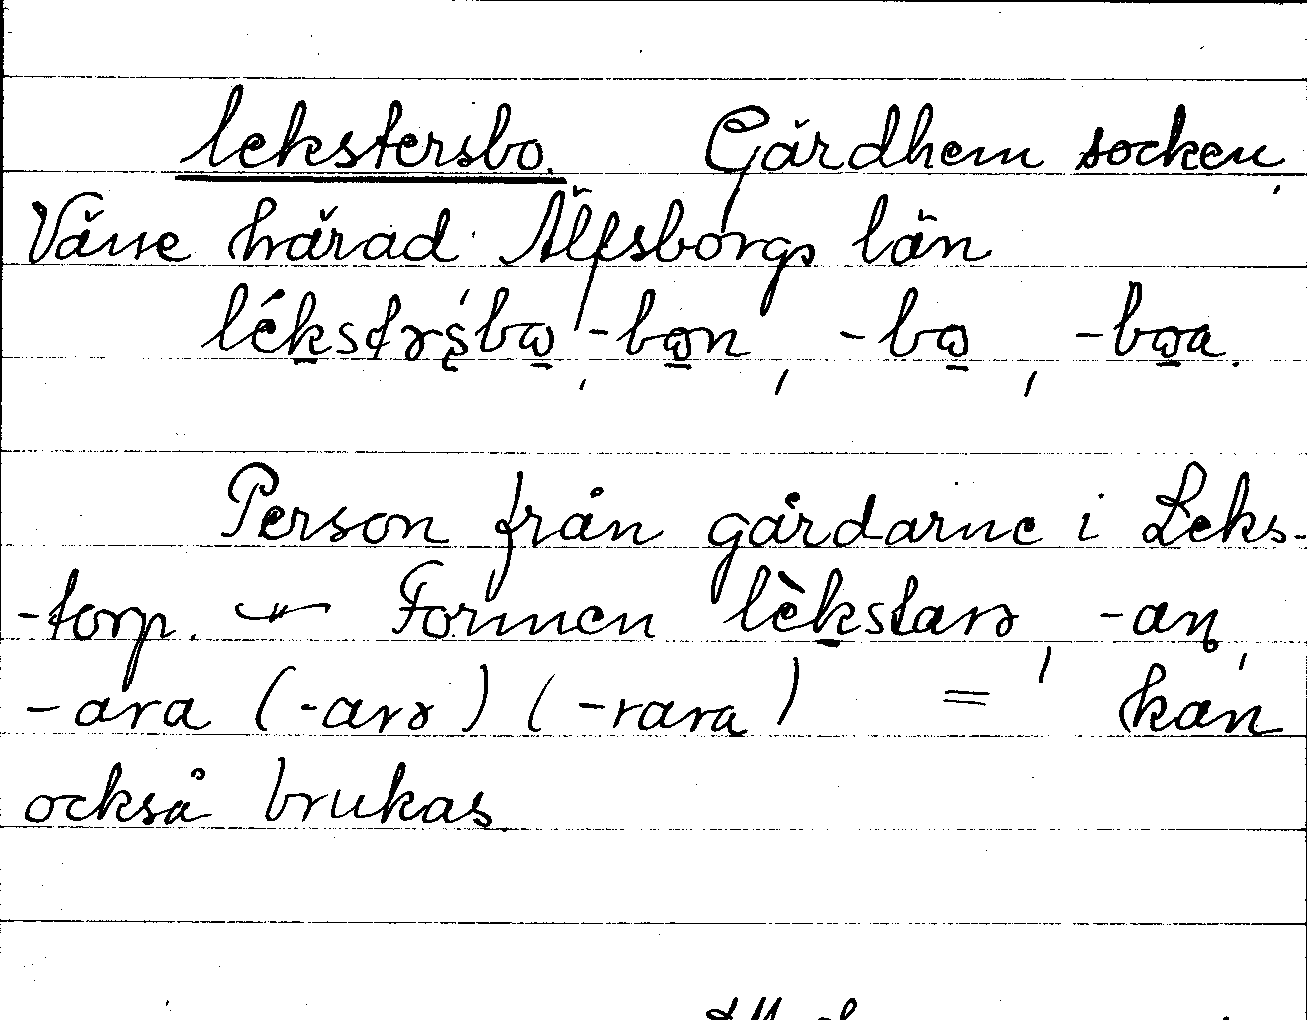 lekstersbo. Gärdhem socken,
Väne härad Älfsborgs län
lékstərs̨bω̱, -bω̱n, -bω̱, -bω̱a.
Person från gårdarne i Leks-
-torp. — Formen lèkstarə, -an̨,
-ara (-arə) (-rara) = kan
också brukas